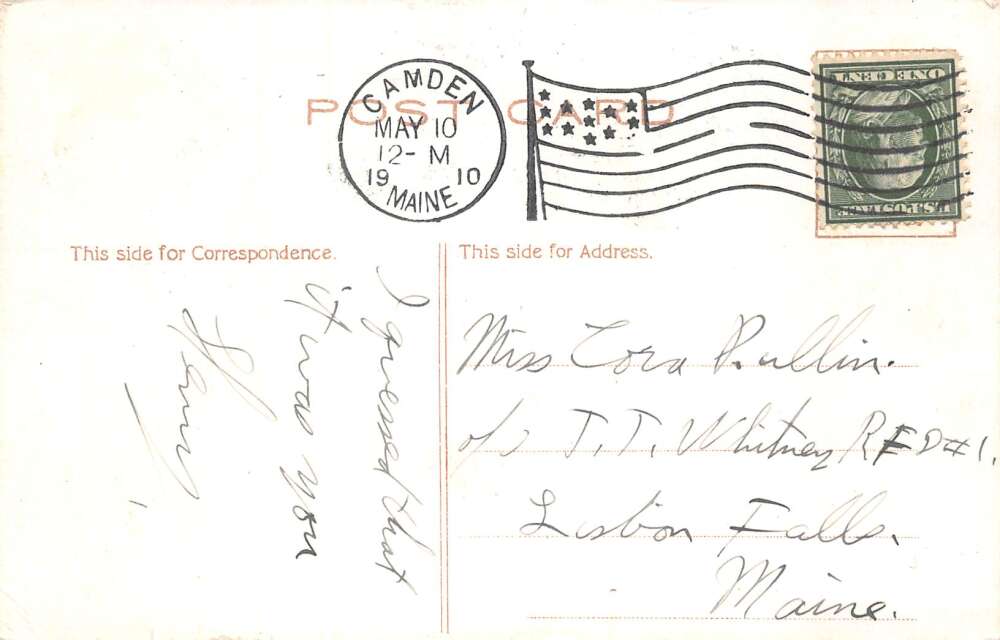 POST CARD
CAMDEN
MAY 10
12- M
19 10
MAINE
ONE CENT
U.S. POSTAGE
This side for Correspondence.
This side for Address.
I guessed that
it was you
Henry
Miss Cora Pullin.
c/o T. T. Whitney RFD#1.
Lisbon Falls.
Maine.